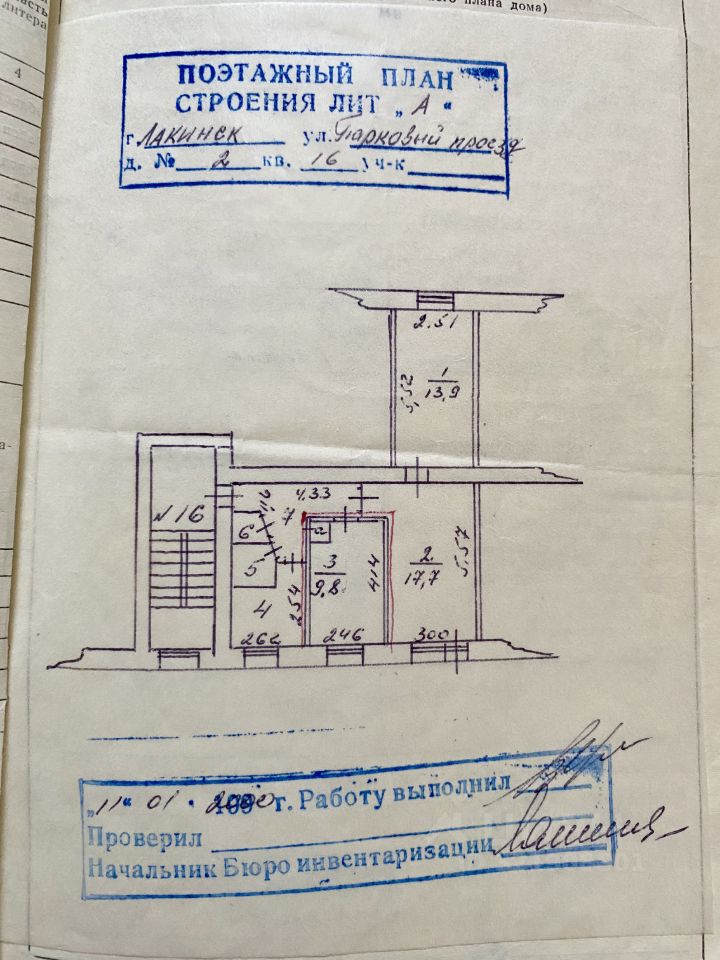 литера
4
плана дома)
ПОЭТАЖНЫЙ ПЛАН
СТРОЕНИЯ ЛИТ „А“
г Лакинск ул. Парковый проезд
д. № 2 кв. 16 уч-к
2.51
5,52
1
13,9
4.33
№16
7
6
5
4
а
3
9,8
2.54
4.14
2.
17,7
5.57
262
246
300
„11“ 01. 2000 г. Работу выполнил
Проверил
Начальник Бюро инвентаризации